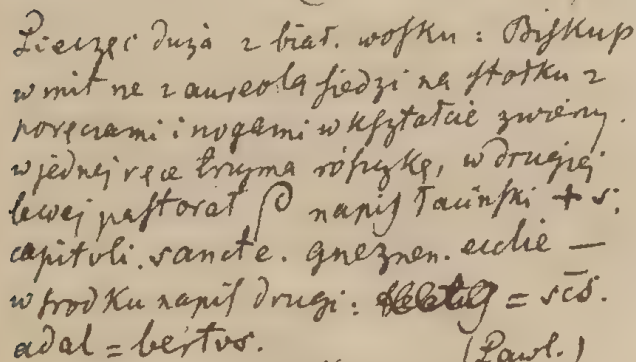 Pieczęć duża z biał. wosku : Biskup
w mit ne z aureolą siedzi na stołku z
poręczami i nogami w kształcie zwierzy.
w jednej ręce trzyma różyczkę, w drugiej
lewej pastorał napis łaciński + s.
capituli. sancte. gneznen. ecclie —
w środku napis drugi : = scs.
adal = bertus.
(Pawl.)